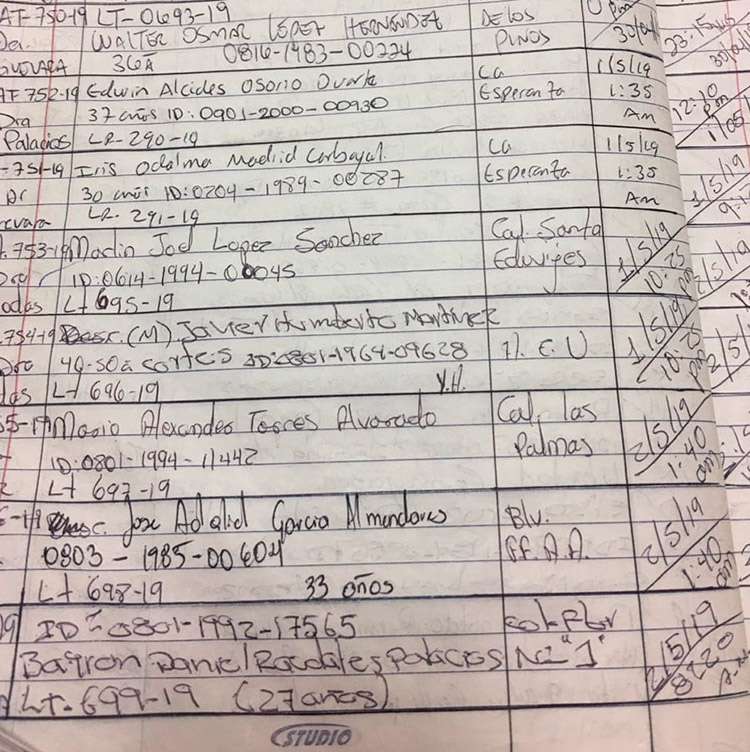 AF-750-19 LT-0693-19 DELOS
WALTER OSMAR LOPEZ HERNANDEZ PINOS 30/04/
GUEVARA 36A 0816-1983-00224
AF 752-19 Edwin Alcides Osorio Duarte La 1/5/19
Dra 37 años ID:0901-2000-00930 Esperanza 1:35
Palacios LR-290-19 Am
-751-19 Iris Odalma Madrid Carbajal. La 1/5/19
Dr 30 años ID:0204-1989-00287 Esperanza 1:35
LR-291-19 Am
753-19 Marlin Joel Lopez Sanchez Col. Santa 1/5/19
ID:0614-1994-00045 Eduvijes 10:25
odas Lt 695-19
754-19 Desc. (M) Javier Humberto Martinez 1/5/19
40-50 a cortes ID:0801-1964-09628 H. E. U 10:25 pm
das Lt 696-19 Y.A.
55-19 Mario Alexander Torres Alvarado Col. las 2/5/19
ID:0801-1994-11442 Palmas 1:40 am
Lt 697-19
-19 Jose Adalid Garcia Almendares Blv. 2/5/19
0803-1985-00604 FF.A.A. 1:40 am
Lt 698-19 33 años
19 ID=0801-1992-17565 2/5/19
Bayron Daniel Rodales Palacios N2 "1" 8:20 A.m
Lt-699-19 (27 años)
STUDIO